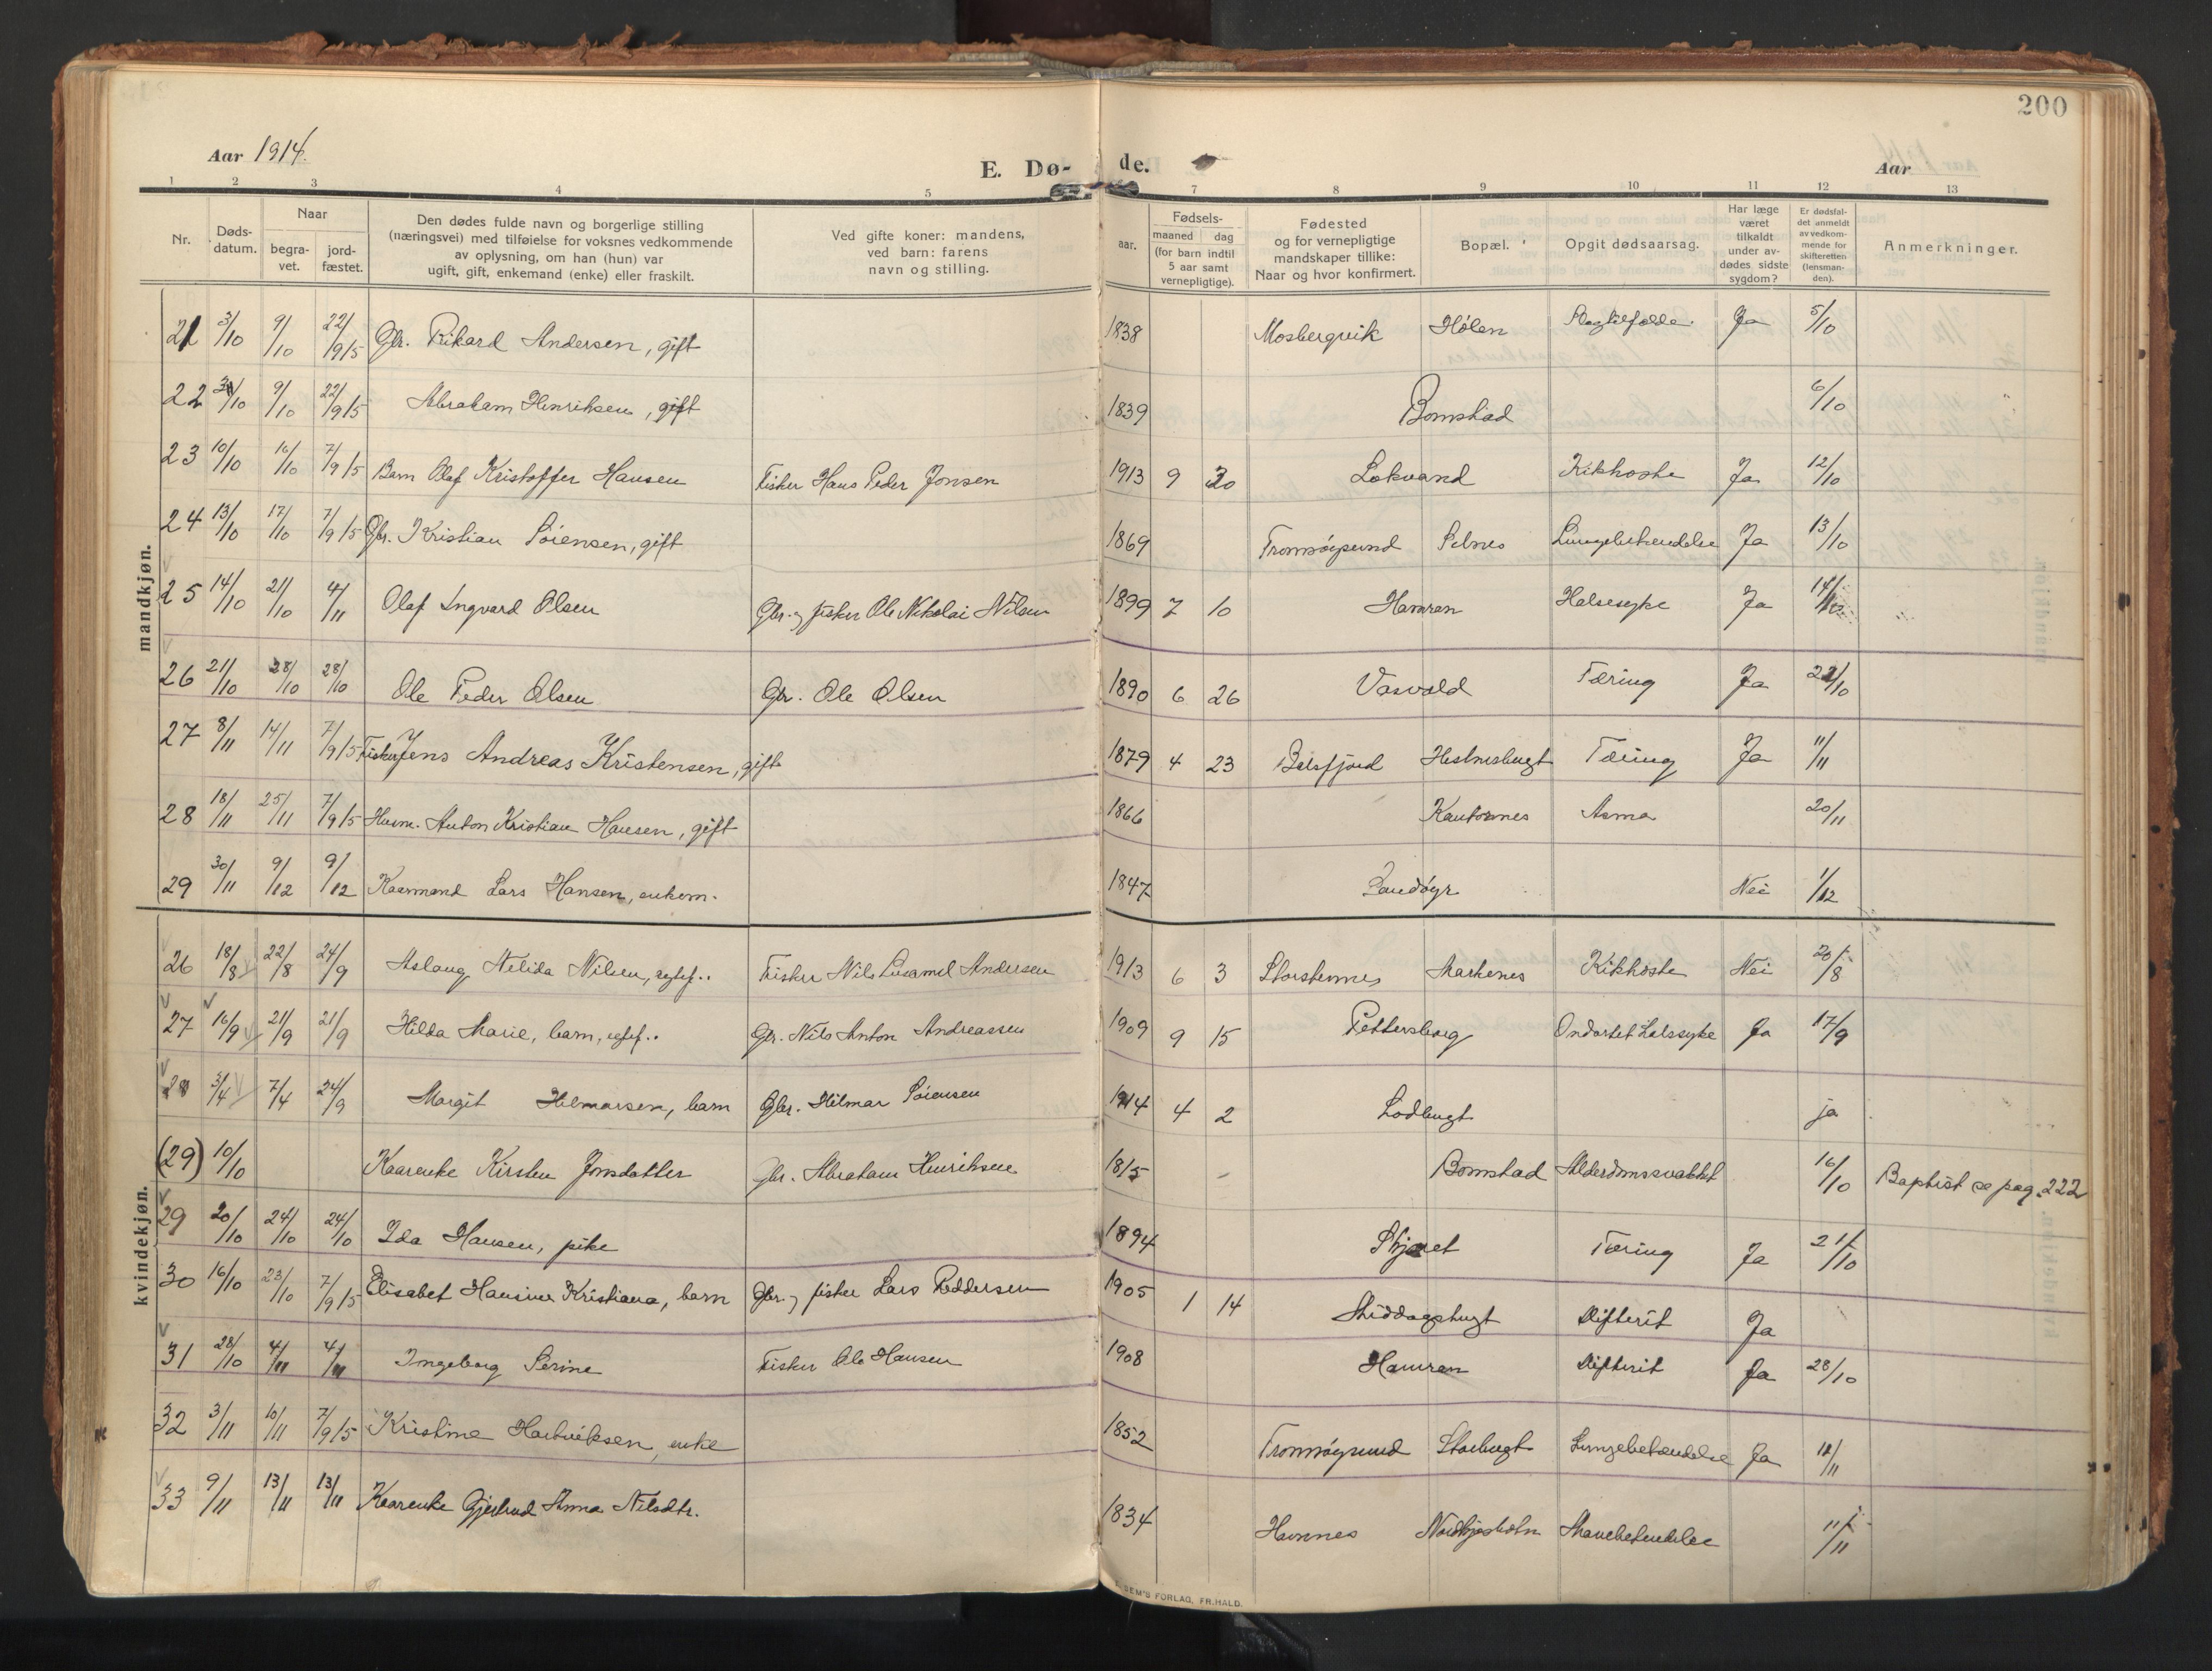 200
Aar 1914.
E. Dø- de.
Aar
1 2 3 4 5 7 8 9 10 11 12 13
Nr.
Døds-
datum.
Naar
begra-
vet.
jord-
fæstet.
Den dødes fulde navn og borgerlige stilling
(næringsvei) med tilføielse for voksnes vedkommende
av oplysning, om han (hun) var
ugift, gift, enkemand (enke) eller fraskilt.
Ved gifte koner: mandens,
ved barn: farens
navn og stilling.
aar.
Fødsels-
maaned dag
(for barn indtil
5 aar samt
vernepligtige).
Fødested
og for vernepligtige
mandskaper tillike:
Naar og hvor konfirmert.
Bopæl.
Opgit dødsaarsag.
Har læge
været
tilkaldt
under av-
dødes sidste
sygdom?
Er dødsfal-
det anmeldt
av vedkom-
mende for
skifteretten
(lensman-
den).
Anmerkninger.
mandkjøn.
21 3/10 9/10 22/9 15 Gbr. Rikard Andersen, gift 1838 Mosbergvik Hølen Ja 5/10
22 /10 9/10 22/9 15 Abraham Henriksen, gift 1839 Bomstad 6/10
23 10/10 16/10 7/9 15 Barn Olaf Kristoffer Hansen Fisker Hans Peder Jonsen 1913 9 30 Lokvand Kikhoste Ja 12/10
24 13/10 17/10 7/9 15 Gbr. Kristian Sörensen, gift 1869 Tromsöysund Selnes Lungebetændelse Ja 13/10
25 14/10 21/10 4/11 Olaf Ingvard Olsen Gbr. og fisker Ole Nikolai Nilsen 1899 7 10 Hamran Halsesyke Ja
26 21/10 28/10 28/10 Ole Peder Olsen Gbr. Ole Olsen 1890 6 26 Vasvold Tæring Ja 22/10
27 8/11 14/11 7/9 15 Fisker Jens Andreas Kristensen, gift 1879 4 23 Balsfjord Hestnesbugt Tæring Ja 11/11
28 18/11 25/11 7/9 15 Husm. Anton Kristian Hansen, gift 1866 Kantornes Asma 20/11
29 30/11 9/12 9/12 Kaarmand Lars Hansen, enkem. 1847 Sandöyr Nei 1/12
kvindekjøn.
26 18/8 22/8 24/9 Aslaug Nelida Nilsen, egtef.. Fisker Nils Andersen 1913 6 3 Storstennes Markenes Kikhoste Nei 20/8
27 16/9 21/9 21/9 Hilda Marie, barn, egtef.. Gbr. Nils Anton Andreassen 1909 9 15 Pettersborg Ondartet halssyke Ja 17/9
28 3/4 7/4 24/9 Margit Hilmarsen, barn Gbr. Hilmar Sörensen 1914 4 2 Lodbugt ja
(29) 10/10 Kaarenke Kirsten Jonsdatter Gbr. Abraham Henriksen 1815 - Bomstad Alderdomssvakhet 16/10 Baptist se pag. 222
29 20/10 24/10 24/10 Ida Hansen, pike 1894 Skjæret Tæring Ja 21/10
30 16/10 23/10 7/9 15 Elisabet Hansine Kristiana, barn Gbr. og fisker Lars Peddersen 1905 1 14 Middagsbugt Difterit Ja
31 28/10 4/11 4/11 Ingeborg Serine Fisker Ole Hansen 1908 Hamran Difterit Ja 28/10
32 3/11 10/11 7/9 15 Kristine Hartviksen, enke 1852 Tromsöysund Storbugt Lungebetændelse Ja 11/11
33 9/11 13/11 13/11 Kaarenke Gjertrud Anna Nilsdtr. 1834 Havnnes Nordkjosbotn Mavebetendelse 11/11
SEM'S FORLAG, FR.HALD.